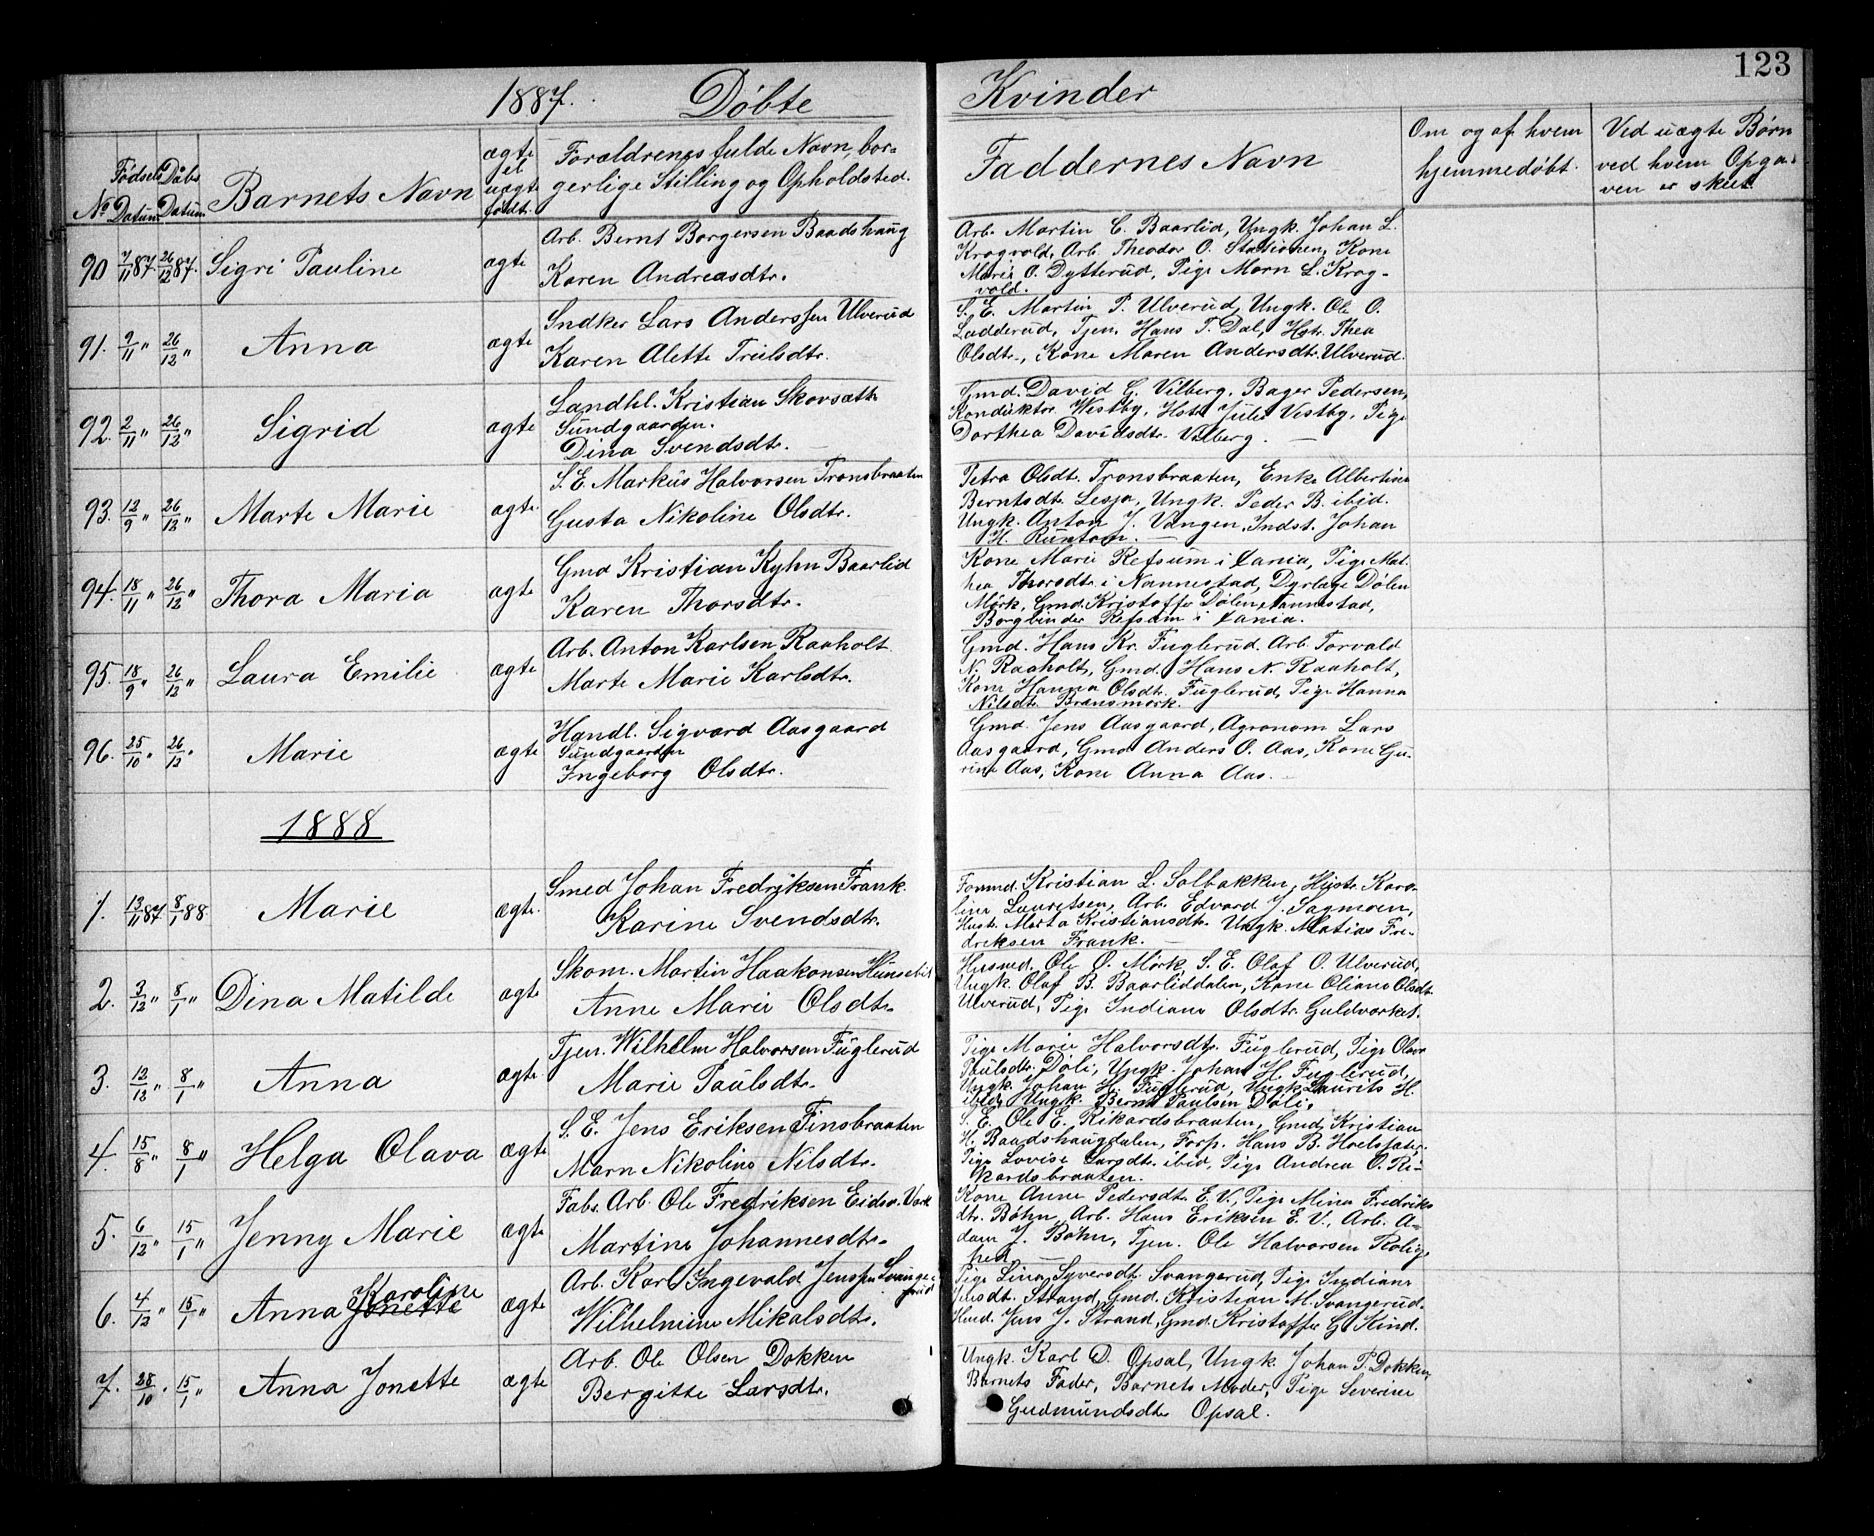 123
1887. Döbte Kvinder
No
Födsels Datum
Döbs Datum
Barnets Navn
ægte el uægte födt.
Forældrenes fulde Navn, bor-
gerlige Stilling og Opholdsted.
Faddernes Navn
Om og af hvem
hjemmedöbt.
Ved uægte Börn
ved hvem Opga-
ven er skeet
90 7/11 87. 26/12 87. Sigri Pauline ægte
Arb. Bernt Borgersen Baadshaug
Karen Andreasdtr.
Arb. Martin C. Baarlid, Ungk. Johan L.
Krogvold, Arb. Theodor O. Stationen, Kone
Marie O. Dytterud, Pige Marn L. Krog-
vold.
91. 9/11 " 26/12 " Anna ægte
Indker Lars Anderssen Ulverud
Karen Alette Trulsdtr.
S. E. Martin P. Ulverud, Ungk. Ole O.
Ladderud, Tjen. Hans T. Dal, Hstr. Thea
Olsdtr., Kone Maren Andersdtr. Ulverud.
92. 2/11 " 26/12 " Sigrid ægte
Landhl. Kristian Skovsæth
Sundgaarden.
Dina Svendsdtr.
Gmd. David G. Vilberg, Bager Pedersen,
Konduktör Westby, Hstr. Julie Vestby, Pige
Dorthea Davidsdtr. Vilberg.
93. 12/9 " 26/12 " Marte Marie ægte
S. E. Markus Halvorsen Tronsbraaten
Gusta Nikoline Olsdtr.
Petra Olsdtr. Tronsbraaten, Enke Albertine
Berntsdtr. Lesja, Ungk. Peder B. ibid.
Ungk. Anton J. Vangen, Indst. Johan
H. Runtom.
94. 18/11 " 26/12 " Thora Maria ægte
Gmd Kristian Kyhn Baarlid
Karen Thorsdtr.
Kone Marie Refsum i Xania, Pige Mat-
hea Thorsdtr. i Nannestad, Dyrlæge Dölen
Mörk, Gmd. Kristoffer Dölen, Nannestad,
Bogbinder Refsum i Xania.
95. 18/9 " 26/12 " Laura Emilie ægte
Arb. Anton Karlsen Raaholt
Marte Marie Karlsdtr.
Gmd. Hans Kr. Fuglerud, Arb. Torvald
N. Raaholt, Gmd. Hans N. Raaholt,
Kone Hanna Olsdtr. Fuglerud, Pige Hanna
Nilsdtr. Brænsmork.
96. 25/10 " 26/12 " Marie ægte
Handl. Sigvard Aasgaard
Sundgaarden
Ingeborg Olsdtr.
Gmd. Jens Aasgaard, Agronom Lars
Aasgaard, Gmd Anders O. Aas, Kone Gu-
rine Aas, Kone Anna Aas.
1888
1. 13/11 87 8/1 88 Marie ægte.
Smed Johan Fredriksen Frank.
Karine Svendsdtr.
Formd. Kristian L. Solbakken, Hustr. Karo-
line Lauretsen, Arb. Edvard J. Sagmoen,
Hustr. Marta Kristiansdtr. Ungk. Matias Fre-
dreksen Frank.
2. 3/12 " 8/1 " Dina Matilde ægte
Skom. Martin Haakonsen
Anne Marie Olsdtr.
Husmd. Ole O. Mörk, S. E. Olaf O. Ulverud,
Ungk. Olaf B. Baarliddalen, Kone Oliane Olsdtr.
Ulverud, Pige Indiane Olsdtr. Guldværket.
3. 12/12 " 8/1 " Anna ægte
Tjen. Wilhelm Halvorsen Fuglerud
Marie Paulsdtr.
Pige Marie Halvorsdtr. Fuglerud, Pige Olava
Paulsdtr. Döli, Ungk. Johan H. Fuglerud,
Ungk. Johan H. Fuglerud, Ungk. Laurits H.
ibid, Ungk. Bernt Paulsen Döli.
4. 15/8 " 8/1 " Helga Olava ægte
S. E. Jens Eriksen Finsbraaten
Marn Nikoline Nilsdtr.
S. E. Ole E. Rikardsbraaten, Gmd. Kristian
H. Baadshaugdalen, Forp. Hans B. Hoelstad,
Pige Lovise Larsdtr. ibid, Pige Andrea O. Ri-
kardsbraaten.
5. 6/12 " 15/1 " Jenny Marie ægte
Fabr. Arb. Ole Fredriksen Eidsv. Værk
Martine Johannesdtr.
Kone Anne Pedersdtr. E. V., Pige Mina Fredriks
dtr. Böhn, Arb. Hans Eriksen E. V., Arb. A-
dam J. Böhn, Tjen. Ole Halvorsen Rolig-
hed.
6. 4/12 " 15/1 " Anna Jonette Karoline ægte
Arb. Karl Ingevald Jenssen Svange-
rud
Wilhelmine Mikalsdtr.
Pige Lina Syversdtr. Svangerud, Pige Indiane
Jensdtr. Strand, Gmd. Kristian M. Svangerud.
Husmd. Jens J. Strand, Gmd. Kristoffer G. Kind.
7. 28/10 " 15/1 " Anna Jonette ægte
Arb. Ole Olsen Dokken
Bergitte Larsdtr.
Ungk. Karl D. Opsal, Ungk. Johan P. Dokken,
Barnets Fader, Barnets Moder, Pige Severine
Gudmundsdtr Opsal.